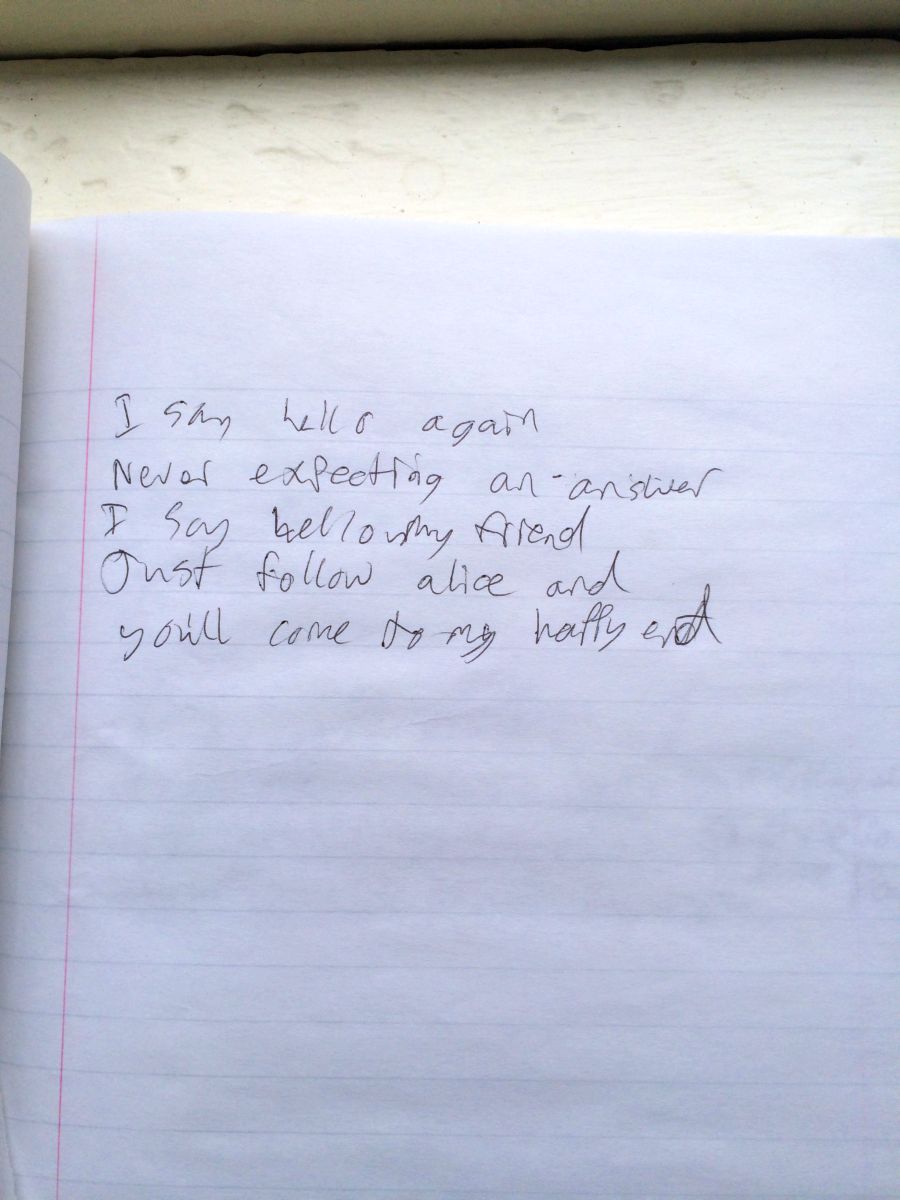 I say hello again
Never expecting an answer
I say hello my friend
Just follow alice and
you'll come to my happy end